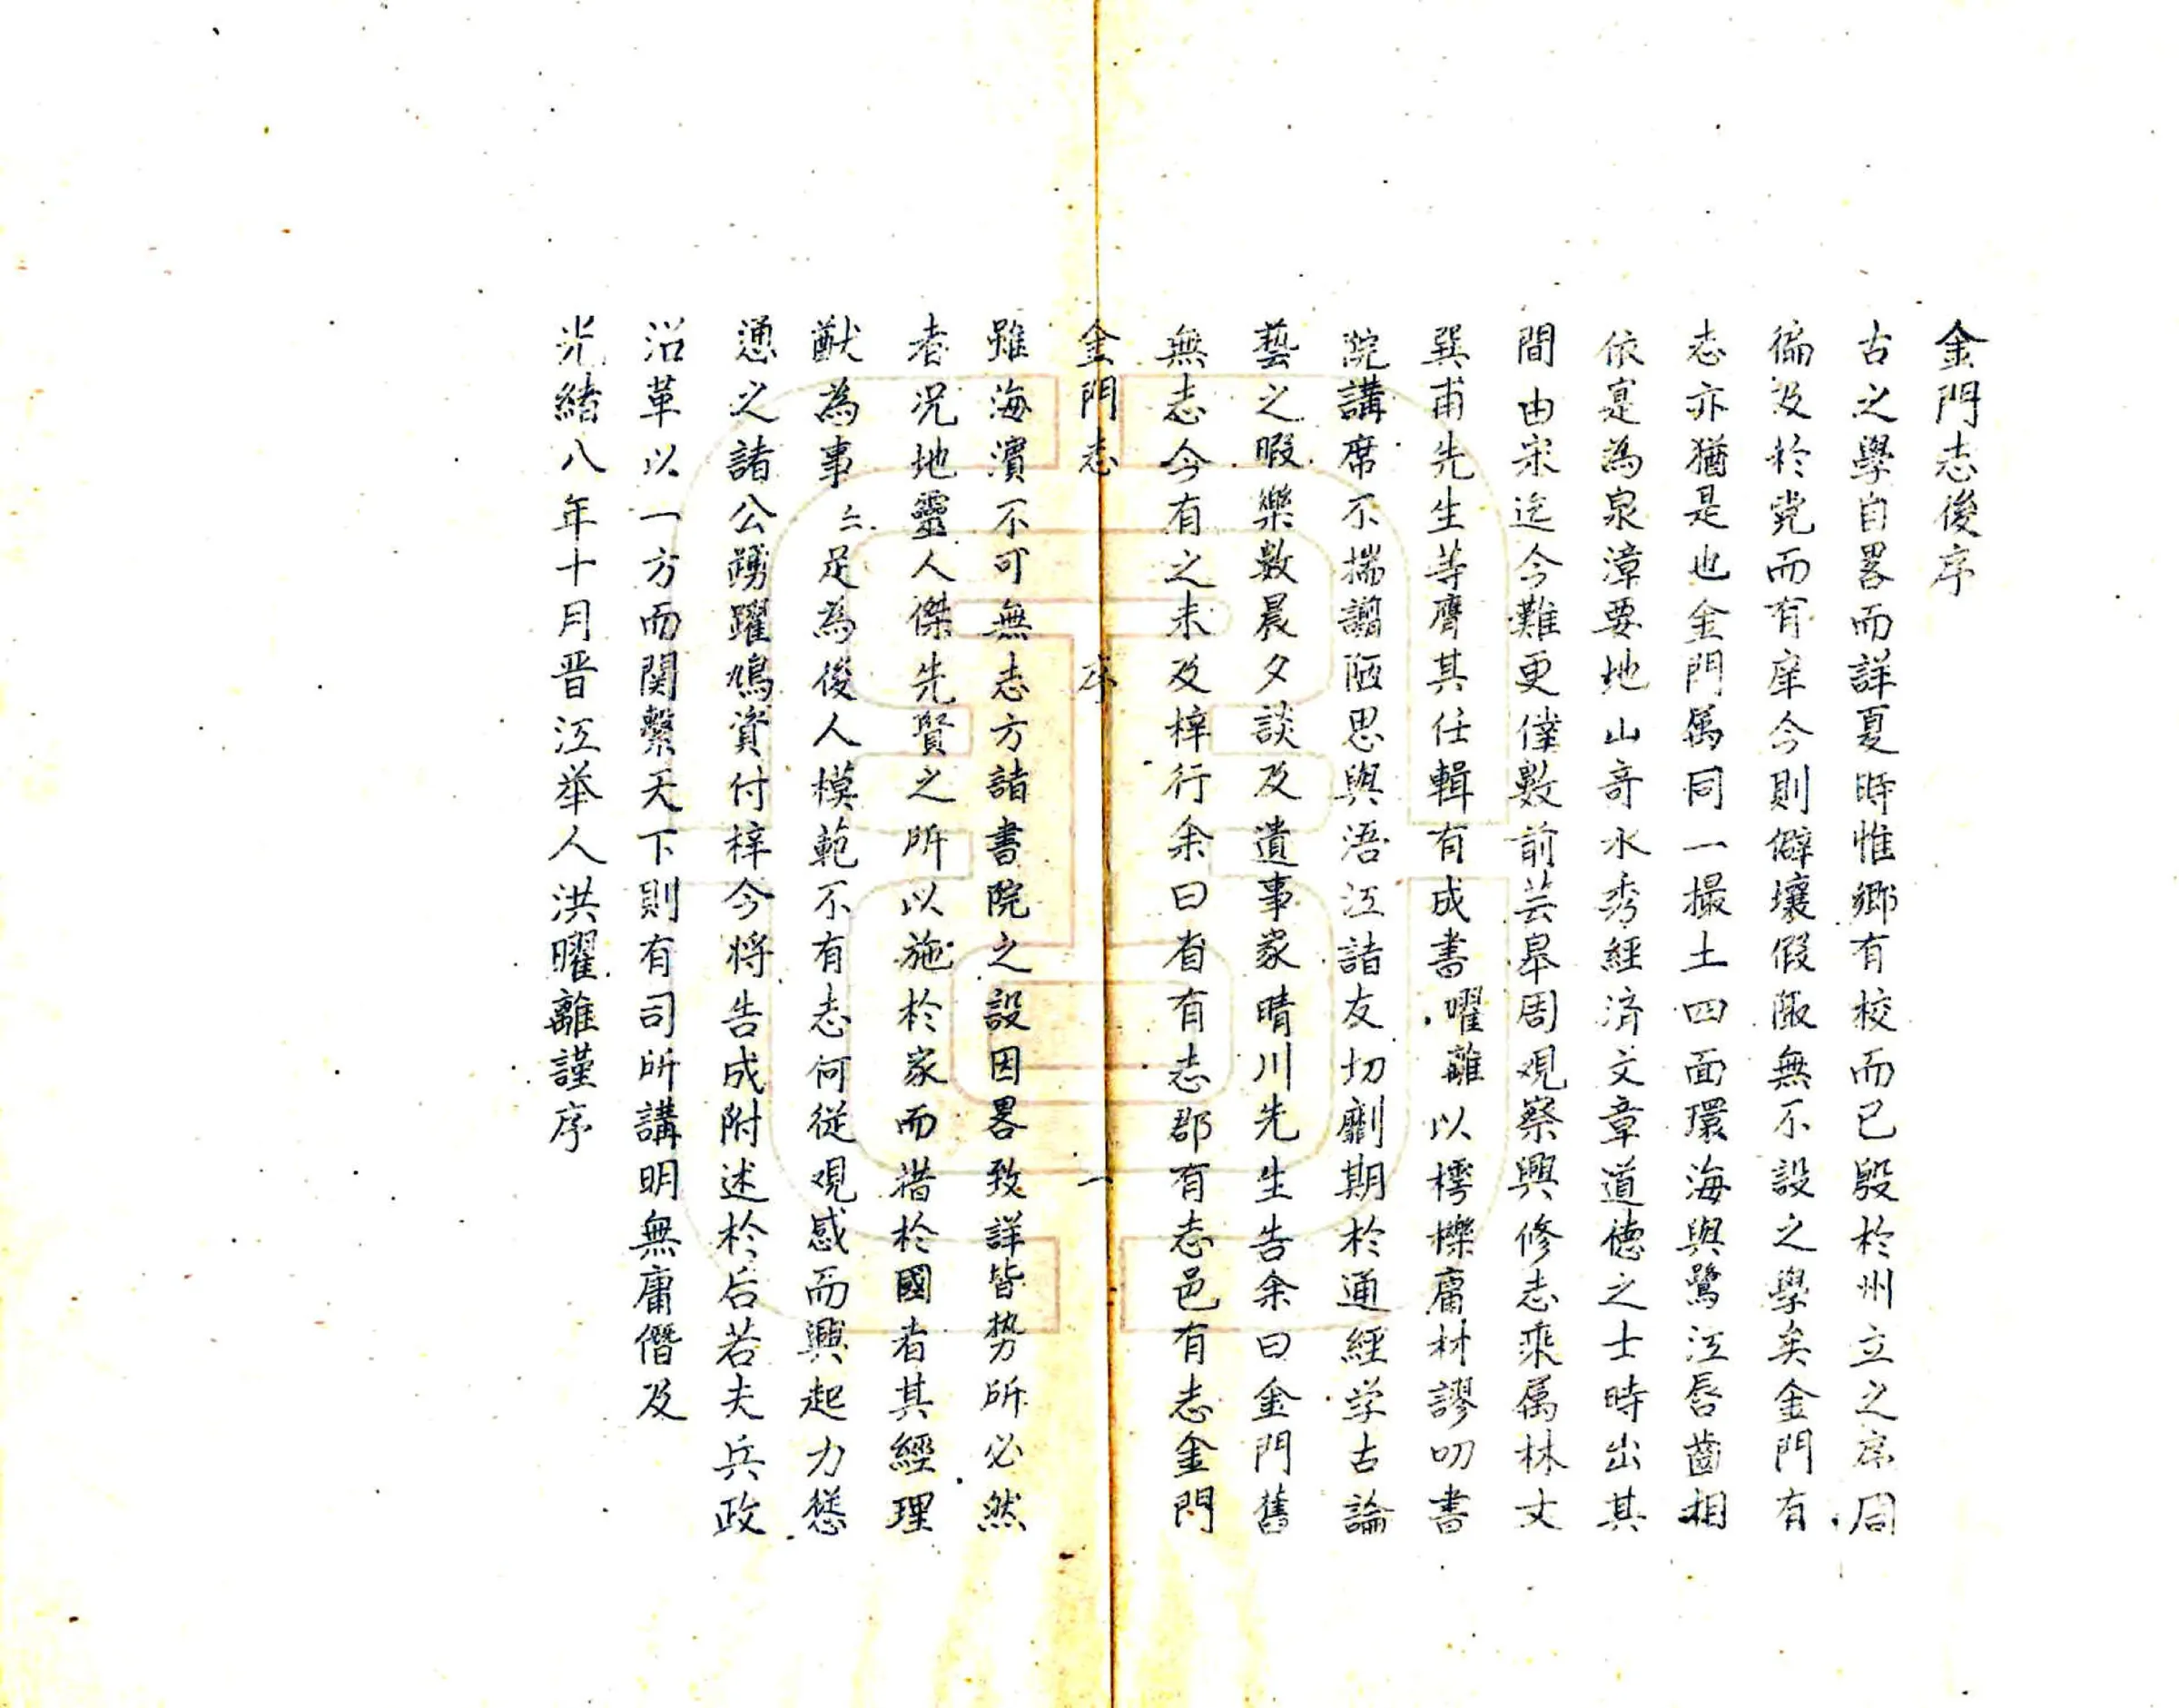 金門志後序
古之學自畧而詳夏時惟鄉有校而已殷於州立之序周
徧及於党而有庠今則僻壤假陬無不設之學矣金門有
志亦猶是也金門属同一撮土四面環海與鷺江唇齒相
依寔為泉漳要地山奇水秀經济文章道德之士時出其
間由宋迄今難更僕數前芸皋周观察興修志乘属林文
巽甫先生等膺其任輯有成書曜離以樗櫟庸材謬叨書
院講席不揣謭陋思與浯江諸友切劘期於通經学古論
藝之暇樂數晨夕談及遺事家晴川先生告余曰金門舊
無志今有之未及梓行余曰省有志郡有志邑有志金門
金門志 序 一
雖海濱不可無志方諸書院之設因畧致詳皆势所必然
者况地靈人傑先賢之所以施於家而措於國者其經理
猷為事〻足為後人模範不有志何從观感而興起力慫
慂之諸公踴躍鳩資付梓今将告成附述於后若夫兵政
沿革以一方而関繫天下則有司所講明無庸僭及
光緒八年十月晋江举人洪曜離謹序